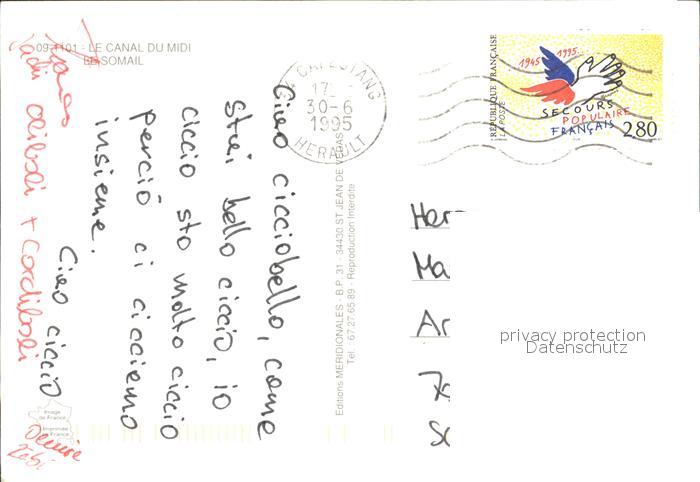 09-1101 - LE CANAL DU MIDI
LE SOMAIL
CAPESTANG
17
30-6
1995
HERAULT
RÉPUBLIQUE FRANÇAISE
LA POSTE
1945 1995
SECOURS
POPULAIRE
FRANÇAIS
2,80
Ciao cicciobello, come
stai bello ciccio, io
ciccio sto molto ciccio
perciò ci cicciamo
insieme.
Ciao ciccio
+ cordiali
Editions MERIDIONALES - B.P. 31 - 34430 ST JEAN DE VEDAS
Tél. 67.27.65.89 - Reproduction Interdite
Her
Ma
Ar
privacy protection
Datenschutz
Image
de France
Imprimée